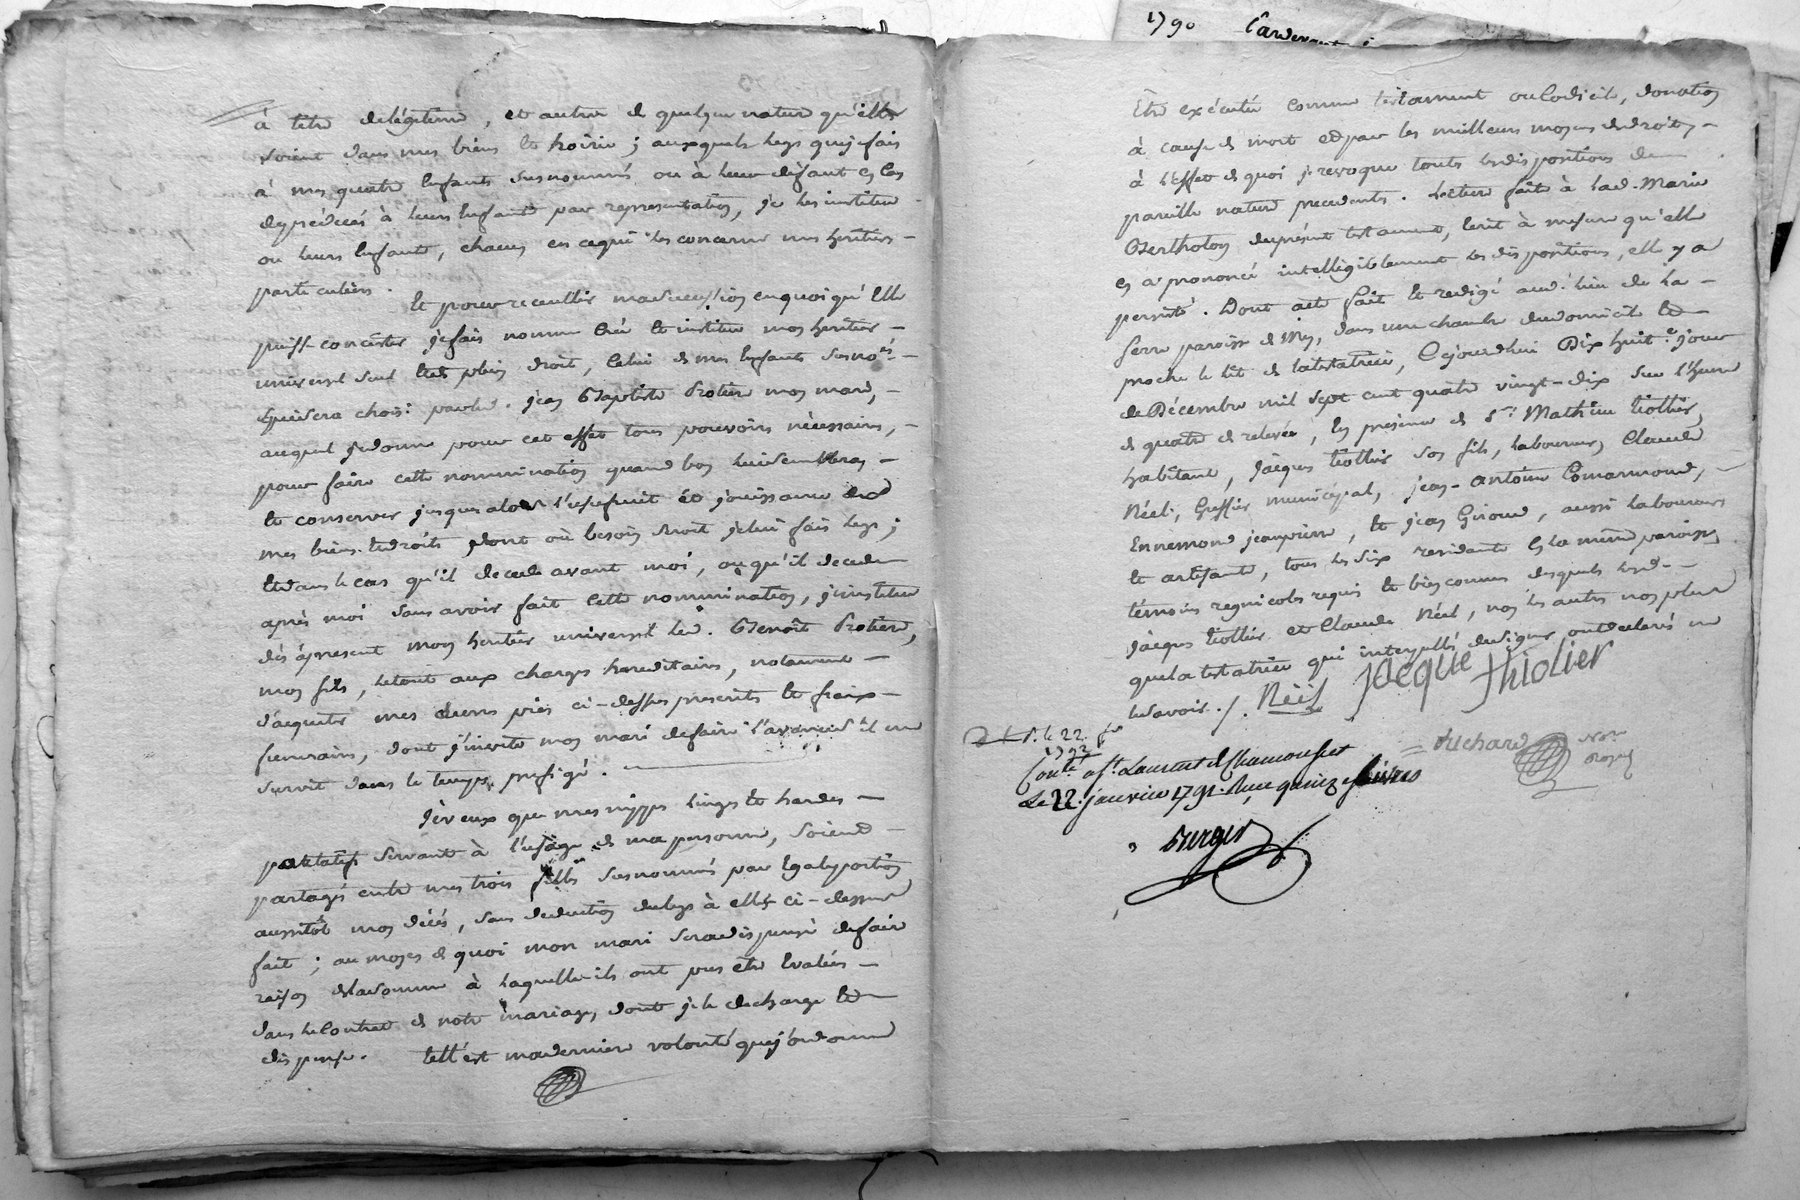 à titre delégitime, et autre de quelque nature qu'elles
soient dans mes biens et hoirie ; auxquels legs que je fais
à mes quatre Enfants susnommés ou à leur défaut en cas
de prédécés à leurs Enfants par representation, je les institue
ou leurs Enfants, chacun en cequi les concerne mes heritiers -
particuliers.
Et pour recueillir ma succession en quoi qu'Elle
puisse concister je fais nomme Créé et institue mon heritier -
universel seul et de plein droit, Celui de mes Enfants susnoés -
qui sera choisi par led. jean Baptiste Protier mon mari, -
auquel je donne pour cet effet tous pouvoirs nécessaires, -
pour faire cette nommination quand bon lui semblera, -
et conserver jusques alors l'usufruit et jouissance de
mes biens et droits dont où besoin seroit je lui fais legs ;
et dans le cas qu'il decede avant moi, ou qu'il decede
après moi sans avoir fait Cette nommination, j'institue
dès àpresent mon heritier universel led. Benoît Protier,
mon fils, le tout aux charges hereditaires, notamment -
d'acquitter mes dons pies ci-dessus prescrits et fraix -
funeraires, dont j'invite mon mari defaire l'avance s'il me
survit dans le temps prefigé.
Je veux que mes nippes linges et hardes -
servant à l'usage de ma personne, soient -
partagés entre mes trois filles susnommés par Egale portion
aussitôt mon décés, sans deduction du legs à elles ci-dessus
fait ; au moyen de quoi mon mari sera dispensé defaire
raison de la somme à laquelle ils ont pus être Evalués -
dans le Contrat de notre mariage, dont je le decharge et -
dispense. tell'est ma derniere volonté que j'ordonne
1790
Etre exécutée comme testament ou Codicile, donation
à cause de mort et par les meilleurs moyens de droit, -
à l'Effet de quoi je revoque toutes les dispositions de
pareille nature precedentes. Lecture faite à lad. Marie
Bertholon du présent testament, Ecrit à mesure qu'elle
en a prononcé intelligiblement les dispositions, elle y a
persisté. Dont acte fait et redigé aud. lieu de la -
ferre paroisse de dans une chambre du domicile et -
proche le lit de la testatrice, Cejourd'hui Dix huite. jour
de Décembre mil sept cent quatre vingt-dix sur l'Heure
de quatre de relevée, En présence de sr. Mathieu tiollier,
habitant, Jacques tiollier son fils, laboureur, Claude
Néel, Greffier municipal, jean-antoine Comarmond, -
Ennemond jeanpierre, et jean Giroud, aussi laboureurs
et artisants, tous les six residants En la même paroisse
témoins regnicoles requis et bien connus desquels lesd. -
Jacques tiollier et Claude Néel, non les autres non plus
que la testatrice qui interpellés de signer ont declarés ne
le savoir. /. Néel jacque thiolier
D. t. s. le 22
1792
Richard Nore Royal
Conté à st. Laurent de Chamousset
Le 22. janvier 1791. Reçu quinze livres
Berger